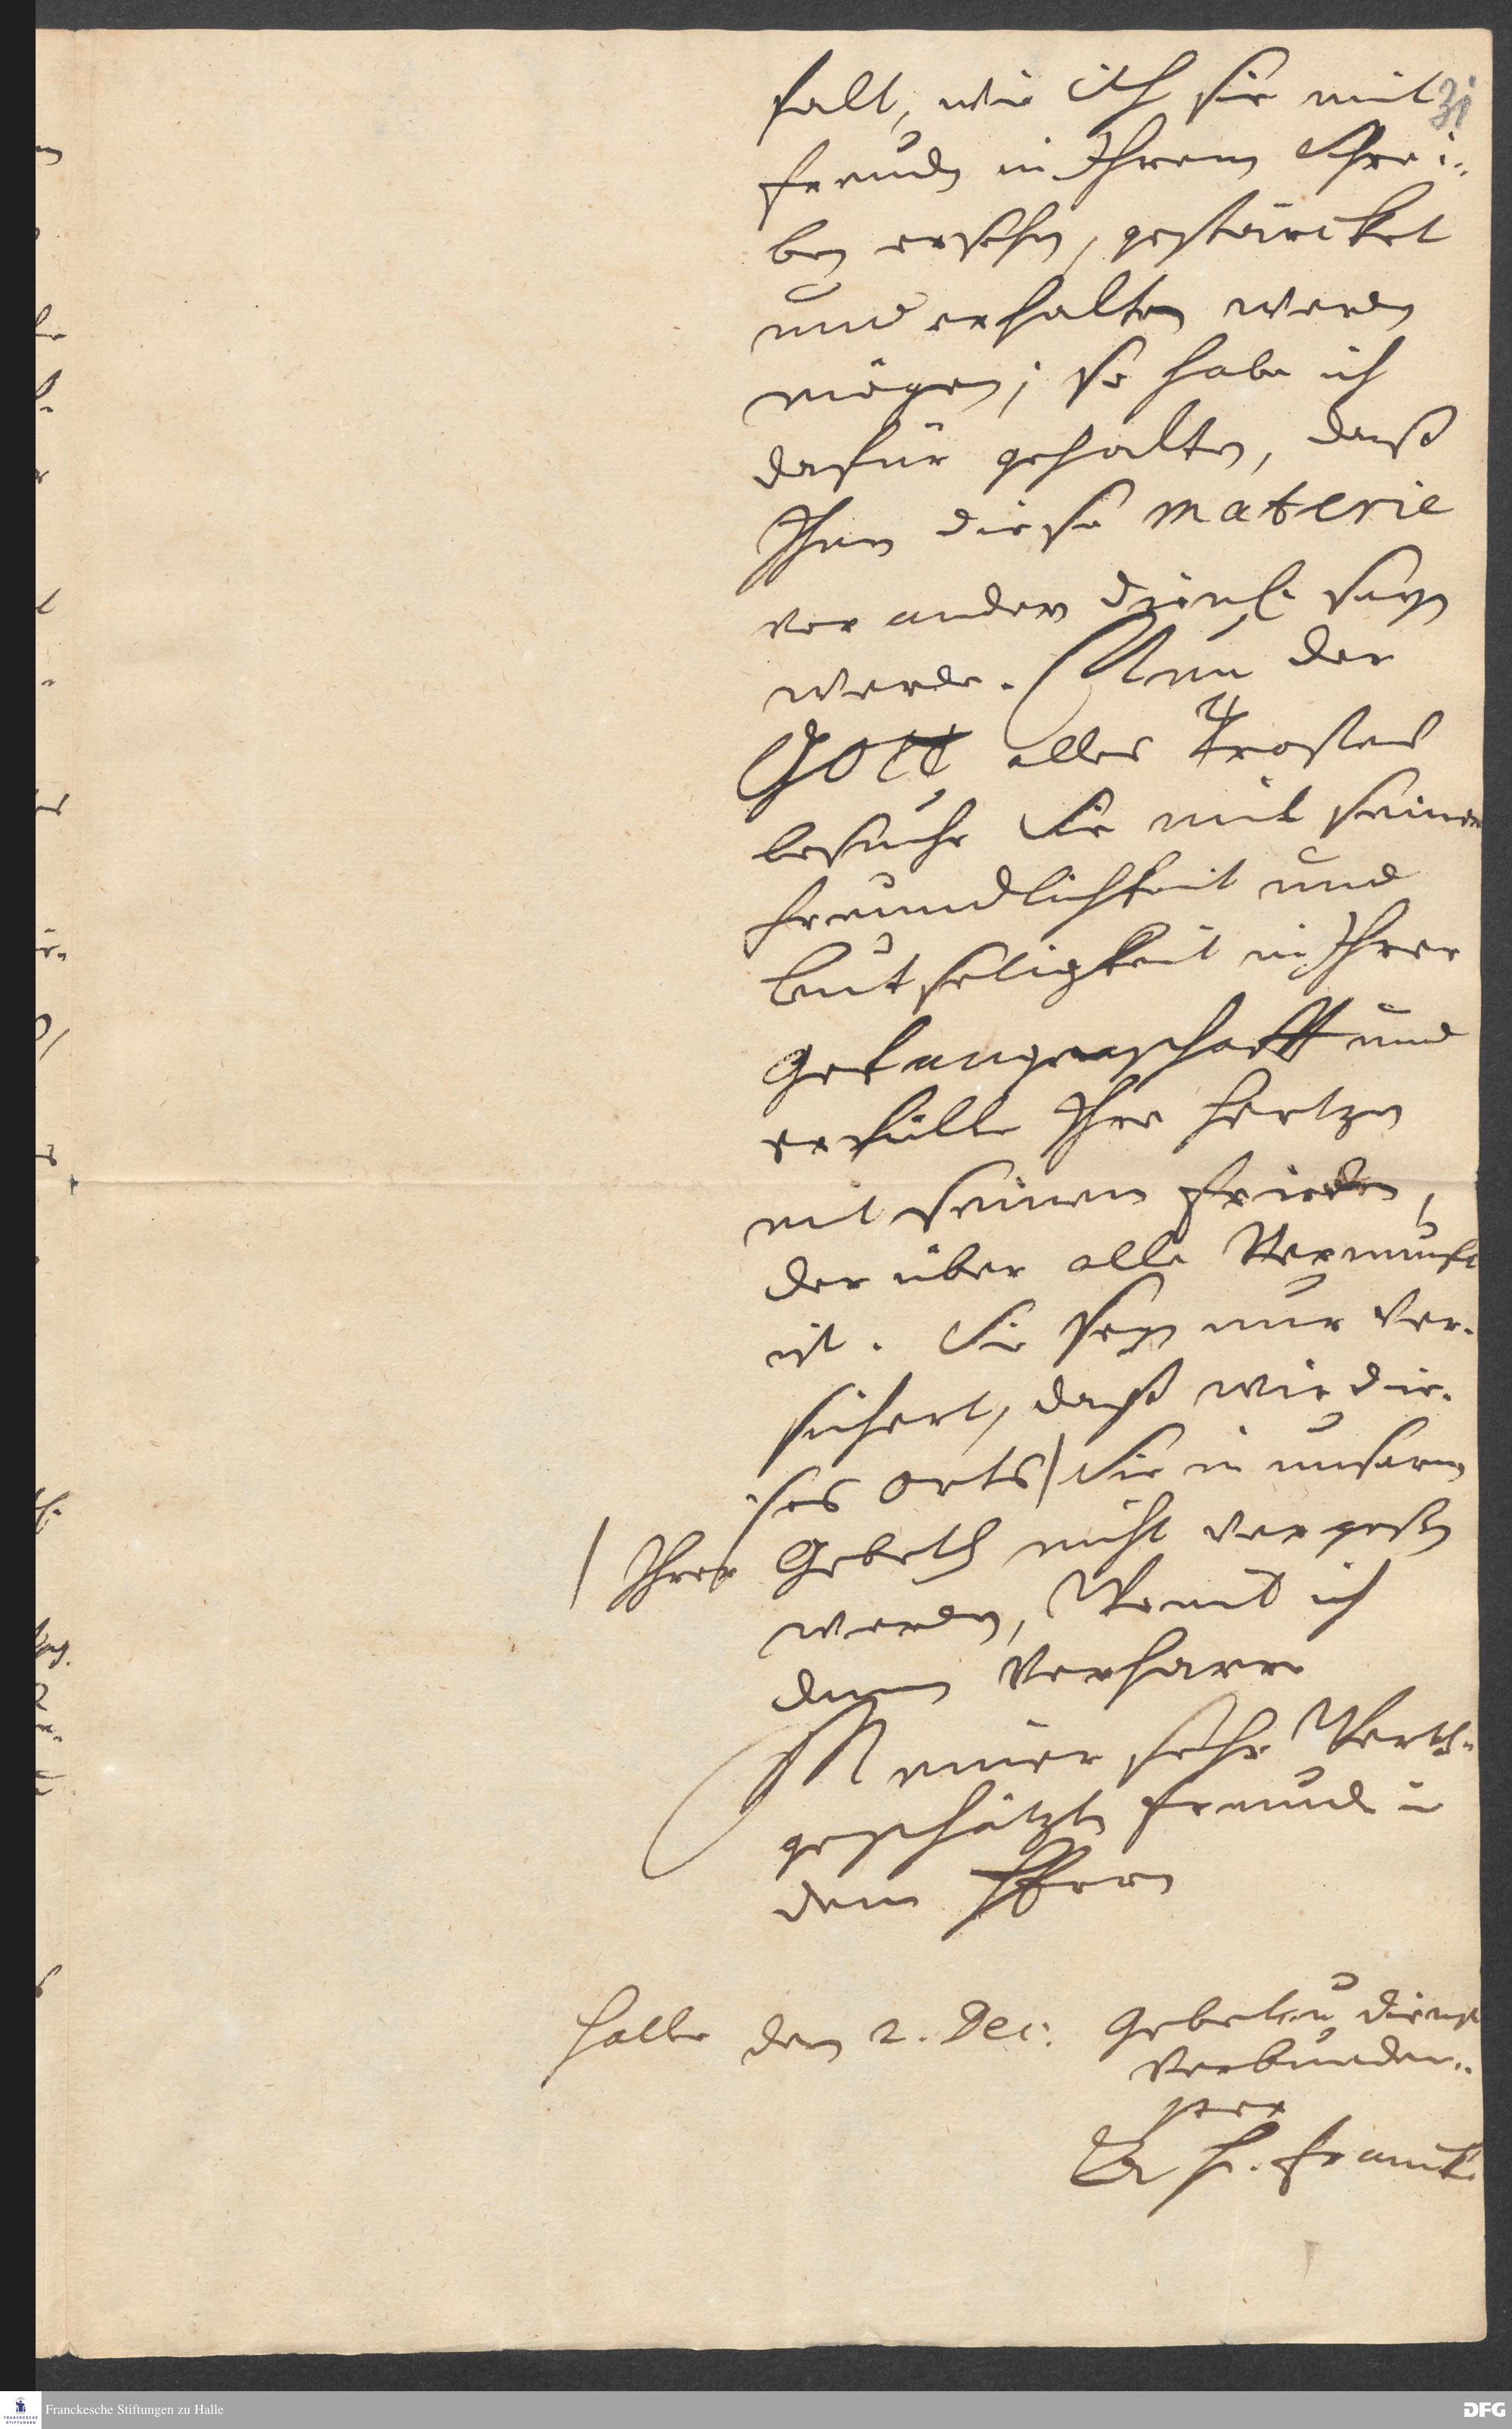 31
falt, wie ich sie mit
freuden in Ihrem Schrei-
ben ersehen, gestärcket
und erhalten werden
mögen; so habe ich
dafür gehalten, daß
Ihnen diese materie
vor andern dienl. seyn
werde. Nun der
Gott alles Trostes
besuche Sie mit seiner
freundlichkeit und
Leutseligkeit in Ihrer
Gefangenschafft und
erfülle Ihre Hertzen
mit seinem frieden,
der über alle Vernunft
ist. Sie seyn nur ver-
sichert, daß wir die-
ses orts / Sie in unserm
/ Ihrer Gebeth nicht vergeßen
werden, Womit ich
denn verharre
Meiner sehr Werth-
geschätzten freunde in
dem HErrn
Halle den 2. Dec. Gebet u. dienst
verbunden-
ster
A H. Francke
Franckesche Stiftungen zu Halle
DFG